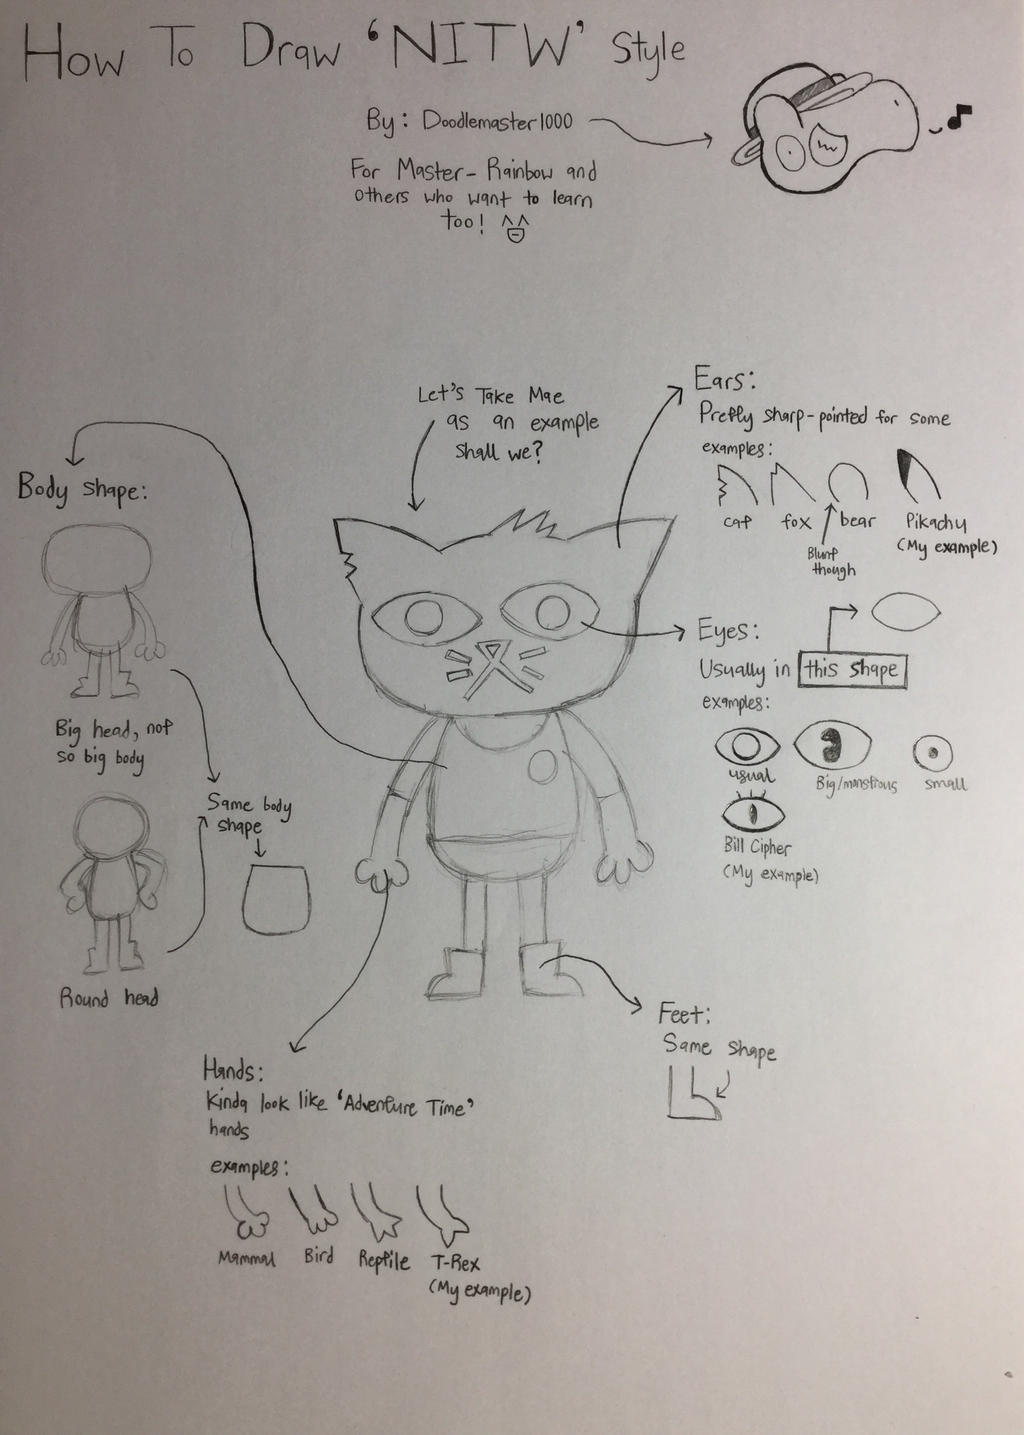 How To Draw 'NITW' Style
By: Doodlemaster1000
For Master-Rainbow and
others who want to learn
too! ^^
Let's Take Mae
as an example
shall we?
Ears:
Pretty sharp-pointed for some
examples:
cat
fox
bear
Pikachu
(My example)
Blunt
though
Body shape:
Big head, not
so big body
Same body
shape
Round head
Eyes:
Usually in this shape
examples:
usual
Big/monstrous
small
Bill Cipher
(My example)
Feet:
Same shape
Hands:
Kinda look like 'Adventure Time'
hands
examples:
Mammal
Bird
Reptile
T-Rex
(My example)